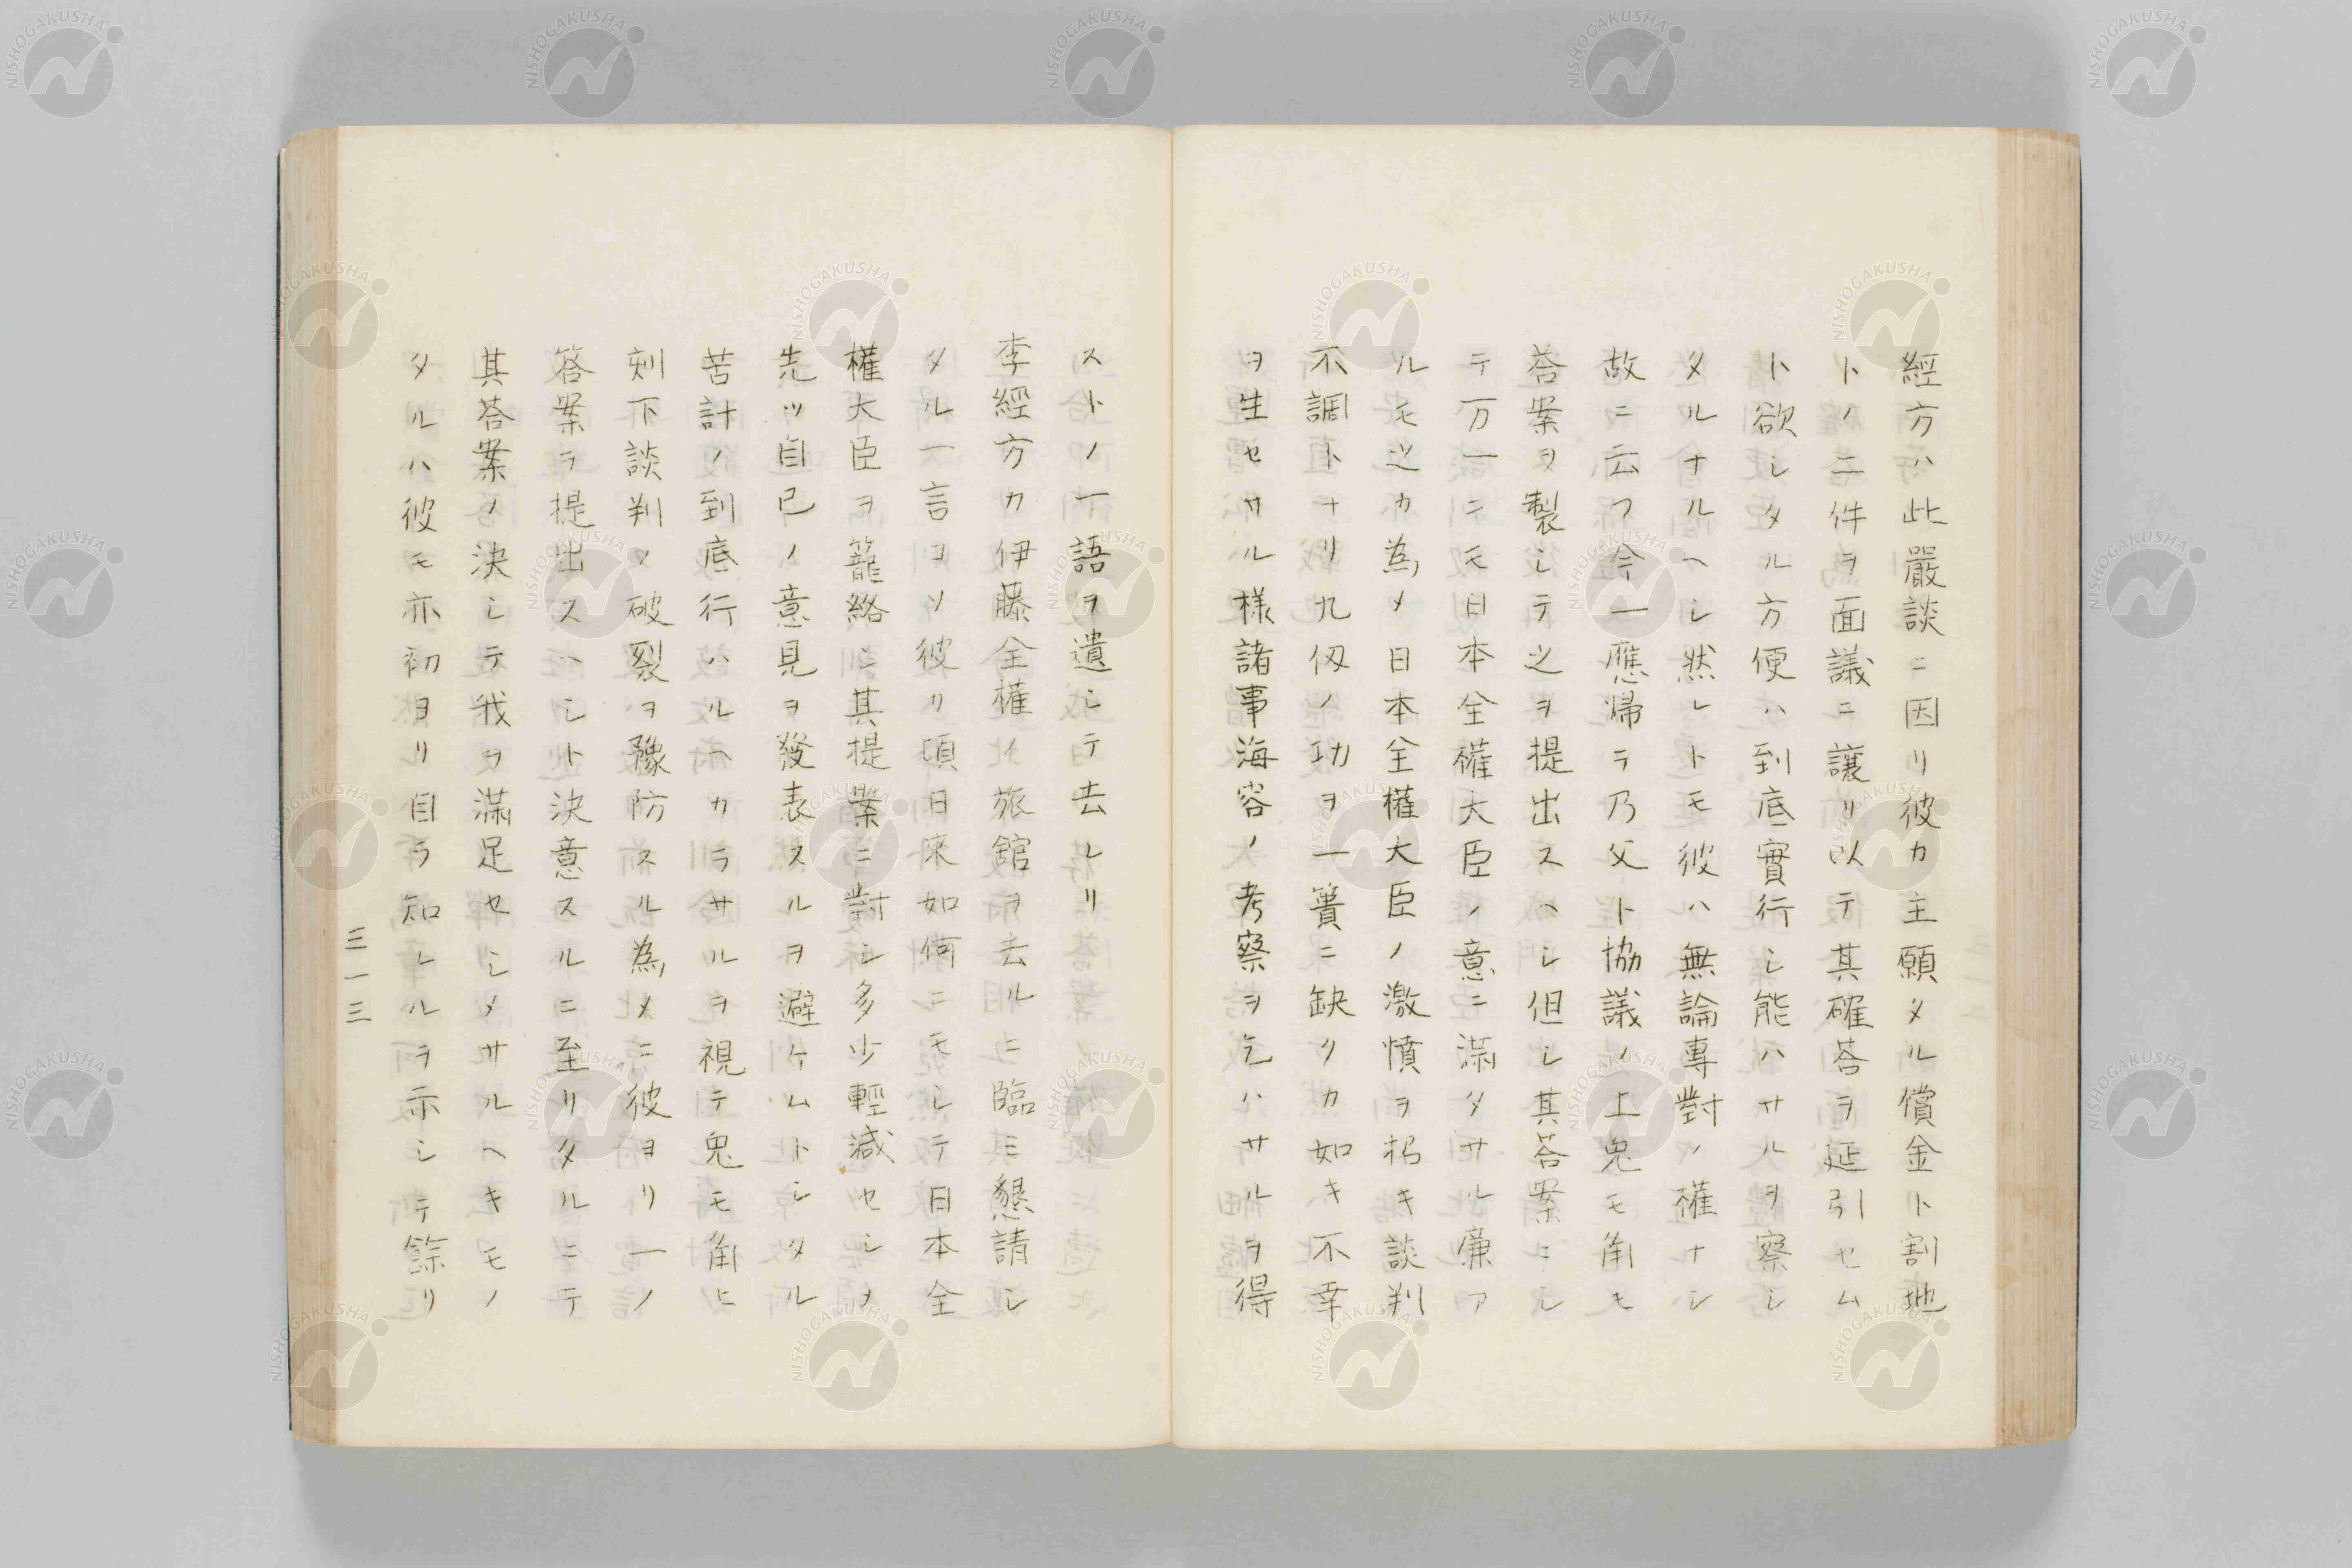 經方ハ此嚴談ニ因リ彼カ主願タル償金ト割地
トノ二件ヲ面議ニ讓リ以テ其確荅ヲ延引セム
ト欲シタル方便ハ到底實行シ能ハサルヲ察シ
タルナルヘシ然レトモ彼ハ無論專對ノ權ナシ
故ニ云フ今一應帰テ乃父ト協議ノ上兎モ角モ
荅案ヲ製シテ之ヲ提出スヘシ但シ其荅案ニシ
テ万一ニモ日本全權大臣ノ意ニ滿タサル廉ア
ルモ之カ為メ日本全權大臣ノ激憤ヲ招キ談判
不調トナリ九仭ノ功ヲ一簣ニ缺クカ如キ不幸
ヲ生セサル様諸事海容ノ考察ヲ乞ハサルヲ得
ストノ一語ヲ遺シテ去レリ
李經方カ伊藤全權ノ旅館ヲ去ルニ臨ミ懇請シ
タル一言コソ彼リ頃日來如何ニモシテ日本全
權大臣ヲ籠絡シ其提案ニ對シ多少輕減セシメ
先ツ自已ノ意見ヲ發表スルヲ避ケムトシタル
苦計ノ到底行ハルヘカラサルヲ視テ兎モ角ヒ
刻下談判ノ破裂ヲ豫防スル為メニ彼ヨリ一ノ
答案ヲ提出スヘシト決意スルニ至リタルニテ
其荅案ノ決シテ我ヲ滿足セシメサルヘキモノ
タルハ彼モ亦初ヨリ自ラ知レルヲ示シテ餘リ
三一三
NISHOGAKUSHA